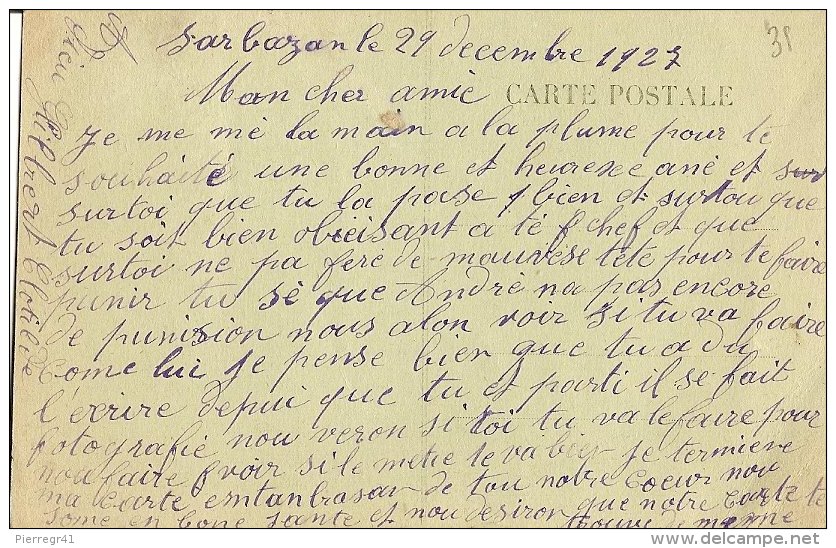 Sarbazan le 29 decembre 1927
31
Mon cher amie
CARTE POSTALE
Je me mé la main a la plume pour te
souhaité une bonne et heurese ané et sur
surtoi que tu la pase bien et surtou que
tu soit bien obéisant a té chef et que
surtoi ne pa feré de mauvese tété pour te faire
punir tu sé que André na pas encore
de punision nous alon voir si tu va faire
Come lui Je pense bien que tu a du
l'exrire depui que tu et parti il se fait
fotografié nou veron si toi tu va le faire pour
nou faire voir si le metié te va bien je termiene
ma carte emtanbrasan de tou notre Coeur nou
some en bone santé et nou desiron que notre Carte te
trouve de menne
Clotilde
Pierregr41
delcampe.net